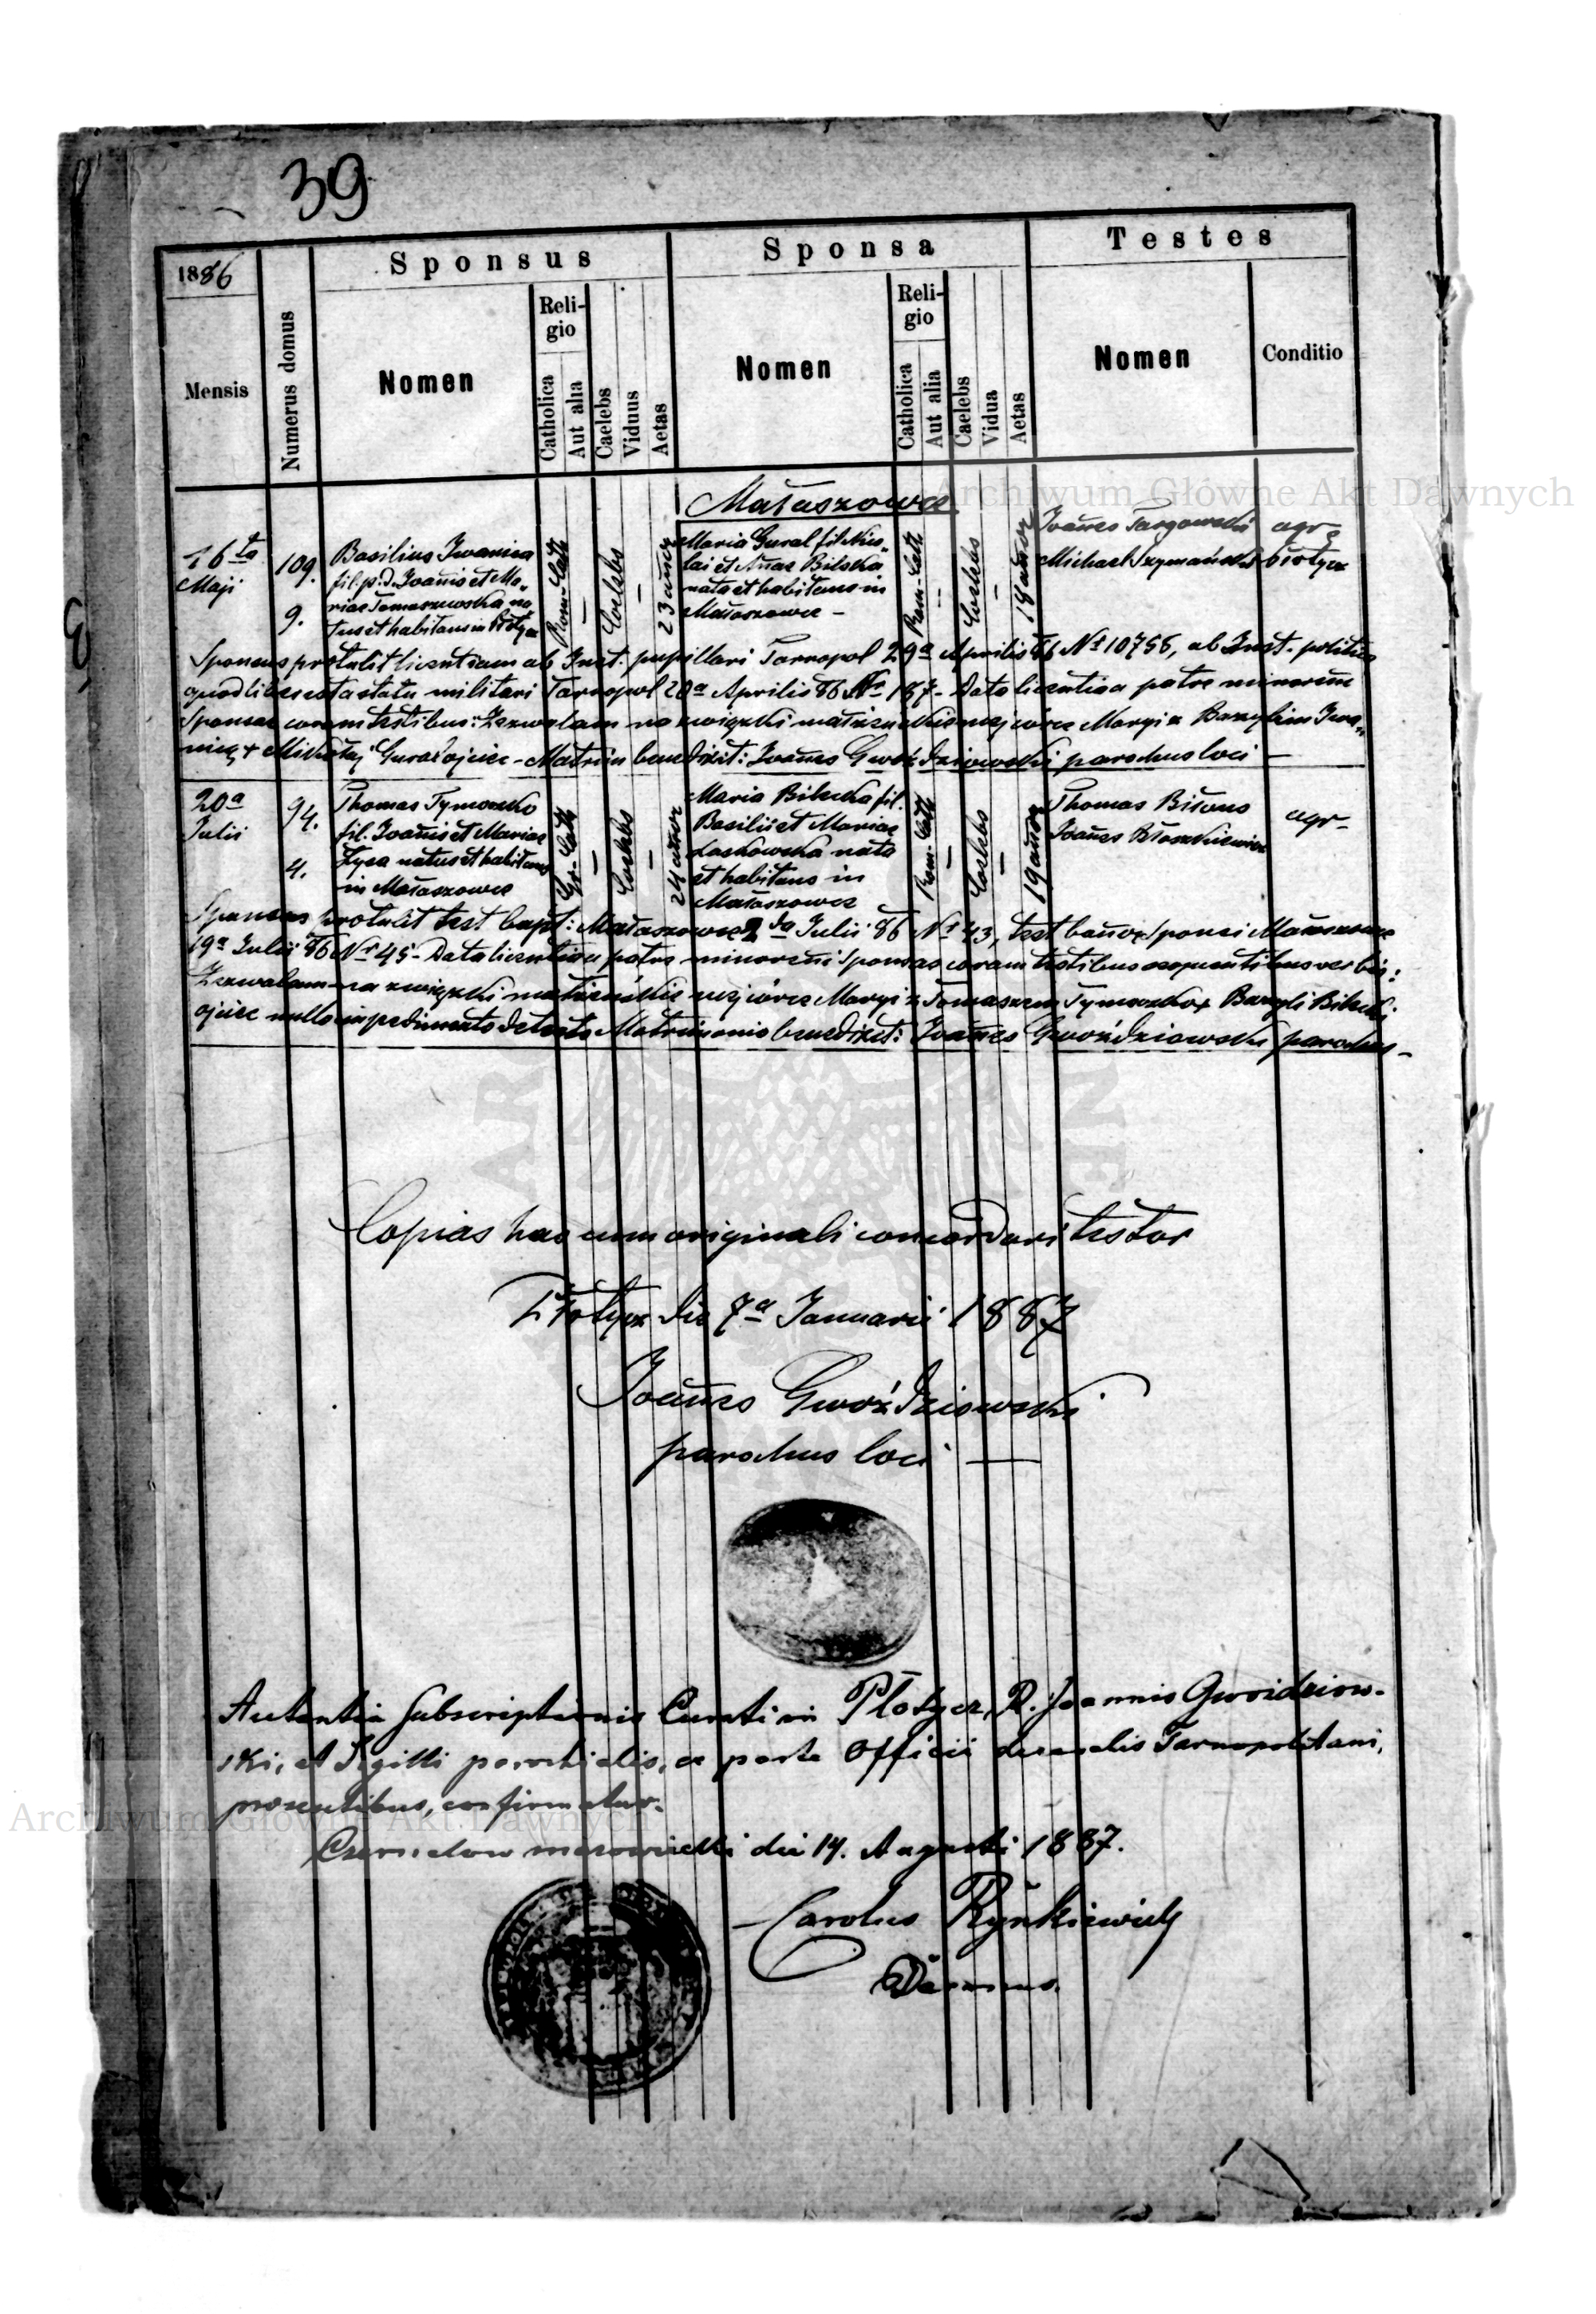 39
1886
Sponsus
Sponsa
Testes
Mensis
Numerus domus
Nomen
Religio
Catholica
Aut alia
Caelebs
Viduus
Aetas
Nomen
Religio
Catholica
Aut alia
Caelebs
Vidua
Aetas
Nomen
Conditio
Małaszowce
16ta
Maji
109.
9.
Basilius Iwanica
fil. p. d. Joañis et Ma-
riae Tomaszewska na-
tus et habitans in
Rom-Cath
Coelebs
23 annor
Maria Gural fil Nico-
lai et Añae Bilska
nata et habitans in
Małaszowce -
Rom-Cath
Coelebs
18 annor
Joañes Targowski
Michael Szymański
agr
Sponsus protulit licentiam ab Inst. pupillari Tarnopol 29a Aprilis 86 No 10756, ab Inst. politica
quod liber est a statu militari Tarnopol 20a Aprilis 86 No 187 - Data licentia a patre minoreñi
Sponsae coram testibus: Zezwalam na związki małżeńskie mej córce Maryi z Bazylim Iwa-
nicą + Mikołaj Gural ojciec - Matrim benedixit: Joañes Gwoździowski parochus loci -
20a
Julii
94.
4.
Thomas Tymoszko
fil. Joañis et Mariae
Łysa natus et habitans
in Małaszowce
Gr-Cath
Coelebs
24 annor
Maria Bilecka fil.
Basilii et Mariae
Laskowska nata
et habitans in
Małaszowce
Rom-Cath
Coelebs
19 annor
Thomas Biłous
Joañes
agr-
Sponsus protulit test bapt: Małaszowce 2da Julii 86 No 43, test bañor Sponsi Małaszowce
19a Julii 86 No 45 - Data licentia a patre minoreñi Sponsae coram testibus sequentibus verbis:
Zezwalam na związki małżeńskie mej córce Maryi z Tomaszem Tymoszko + Bazyli Bilecki
ojciec nullo impedimento detecto Matrimonio benedixit: Joañes Gwoździowski parochus -
Copias has cum originali concordari testor
Płotycz die 7a Januarii 1887
Joañes Gwoździowski
parochus loci -
Autentia Subscriptionis Curati in Płotycz, R. Joannis Gwoździow-
ski, et Sigilli parochialis, ex parte Officii decanalis Tarnopolitani,
praesentibus, confirmatur.
die 14. Augusti 1887.
Carolus
Decanus.
Archiwum Główne Akt Dawnych
Archiwum Główne Akt Dawnych